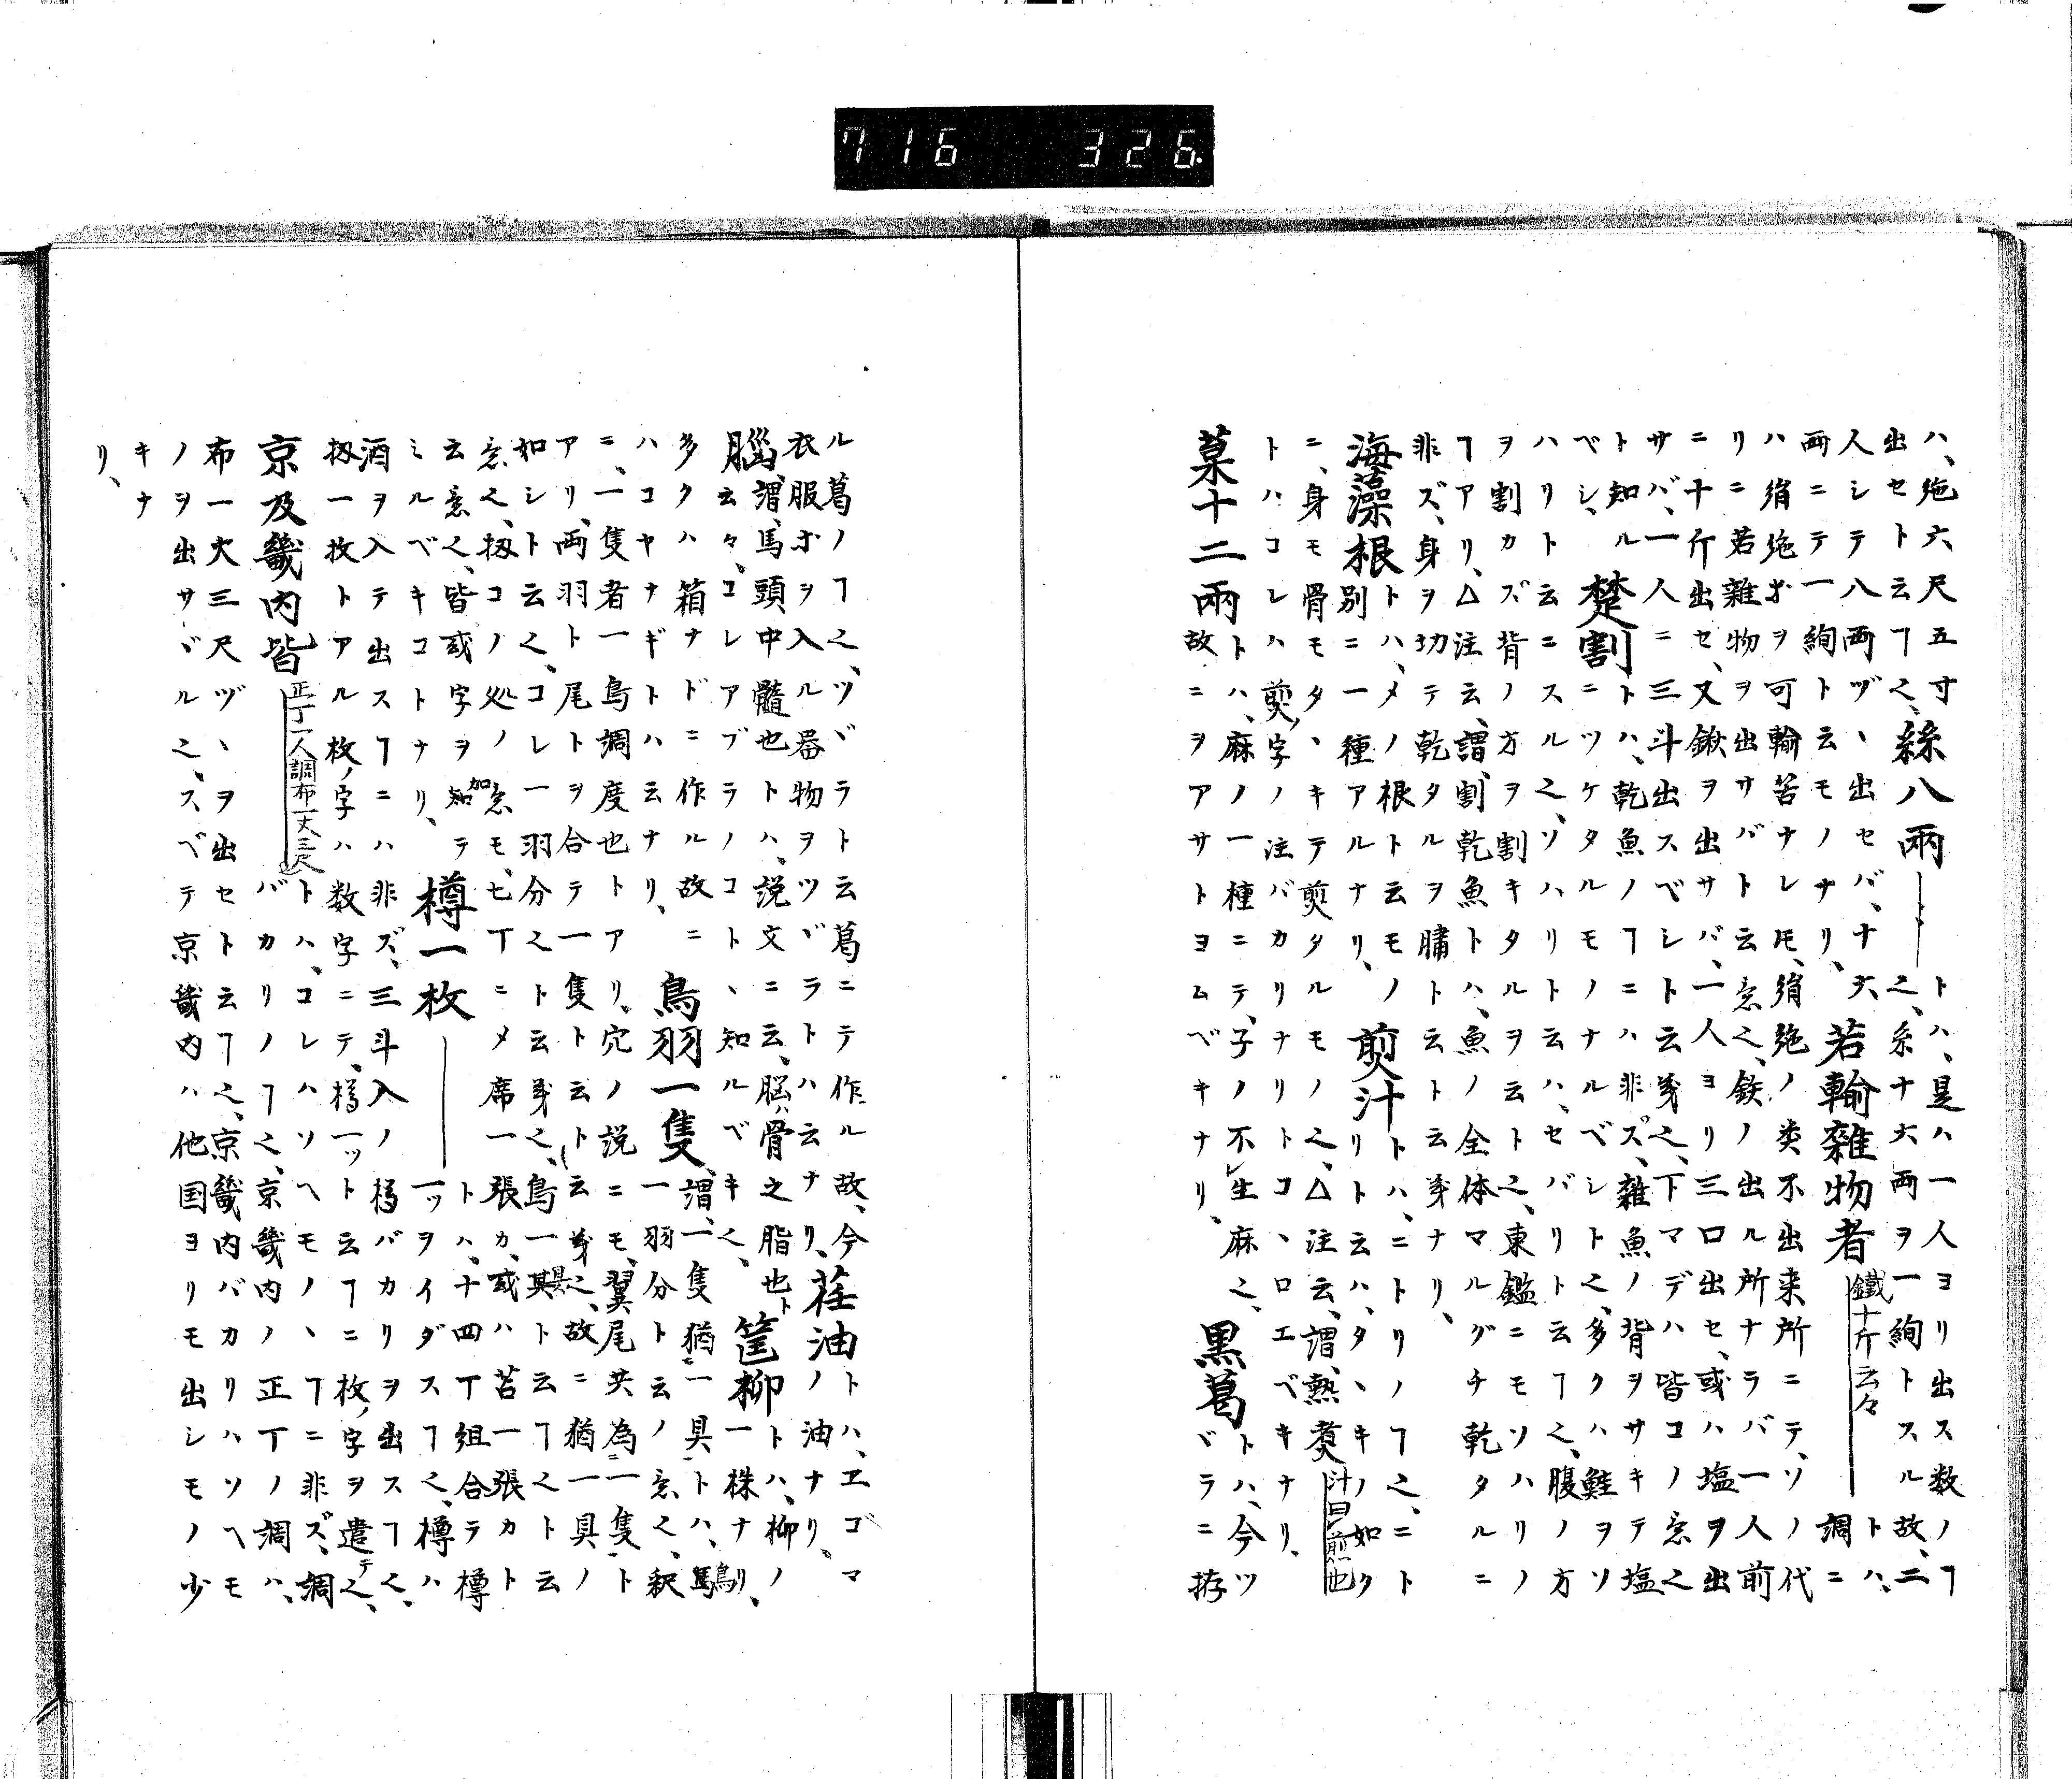 716 326.
ハ、絁六尺五寸、絲八兩――トハ、是ハ一人ヨリ出ス数ノヿ
出セト云ヿ之、系十六両ヲ一絢トスル故、二
人シテ八両ヅヽ出セバ、十六
両ニテ一絢ト云モノナリ、若輸雜物者 鐵十斤云々 トハ、調ニ
ハ絹絁ホヲ可輸苦ナレ𪜈、絹絁ノ类不出来所ニテ、ソノ代
リニ若雜物ヲ出サバト云意之、鉄ノ出ル所ナラバ一人前
ニ十斤出セ、又鍬ヲ出サバ、一人ヨリ三口出セ、或ハ塩ヲ出
サバ、一人ニ三斗出スベシト云㕝之、下マデハ皆コノ意之
ト知ルベシ、楚割トハ、乾魚ノヿニハ非ズ、雜魚ノ背ヲサキテ塩
ニツケタルモノナルベシト之、多クハ鮭ヲソ
ハリト云ニスル之、ソハリト云ハ、セバリト云ヿ之、腹ノ方
ヲ割カズ背ノ方ヲ割キタルヲ云ト之、東鑑ニモソハリノ
ヿアリ、△注云、謂、割乾魚トハ、魚ノ全体マルグチ乾タルニ
非ズ、身ヲ切テ乾タルヲ脯ト云ト云㕝ナリ、
海藻根 トハ、メノ根ト云モノ
別ニ一種アルナリ、煎汁 トハ、ニトリノヿ之、ニト
リト云ハ、タヽキノ如ク
ニ、身モ骨モタヽキテ煎タルモノ之、△注云、謂、熟煑 汁曰煎也
トハコレハ煎ノ字ノ注バカリナリトコヽロエベキナリ、
菒十二兩 トハ、麻ノ一種ニテ、子ノ不生麻之、
故ニヲアサトヨムベキナリ、黒葛 トハ、今ツ
ヾラニ拵
ル葛ノヿ之、ツヾラト云葛ニテ作ル故、今
衣服ホヲ入ル器物ヲツヾラトハ云ナリ、荏油 トハ、ヱゴマ
ノ油ナリ、
腦 謂、馬頭中髓也トハ、説文ニ云、脳ハ骨之脂也ト
云々、コレアブラノコトヽ知ルベキ之、筐柳一 トハ、柳ノ
株ナリ、
多クハ箱ナドニ作ル故ニ
ハコヤナギトハ云ナリ、鳥羽一隻、 謂、一隻猶一具トハ、鳥
一羽分ト云ノ意之、釈
ニ、一隻者一鳥調度也トアリ、穴ノ説ニモ、翼尾共為一隻、ト
アリ、両羽ト尾トヲ合テ一隻ト云ト云㕝之、故ニ猶一具ノ
如シト云之、コレ一羽分之ト云㕝之、鳥一具ト云ヿ之ト云
意之、扨コノ処ノ意モ、七丁ニメ席一張カ、或ハ苫一張カト
云意之、皆或字ヲ加テ
ミルベキコトナリ、樽一枚―― トハ、十四丁組合テ樽
一ッヲイダスヿ之、樽ハ
酒ヲ入テ出スヿニハ非ズ、三斗入ノ樽バカリヲ出スヿ之、
扨一枚トアル枚ノ字ハ数字ニテ、樽一ット云ヿニ枚ノ字ヲ遣テ之、
京及畿内皆 正丁一人調布一丈三尺 トハ、コレハソヘモノヽヿニ非ズ、調
バカリノヿ之、京畿内ノ正丁ノ調ハ、
布一丈三尺ヅヽヲ出セト云ヿ之、京畿内バカリハソヘモ
ノヲ出サヾル之、スベテ京畿内ハ他国ヨリモ出シモノ少
キナ
リ、